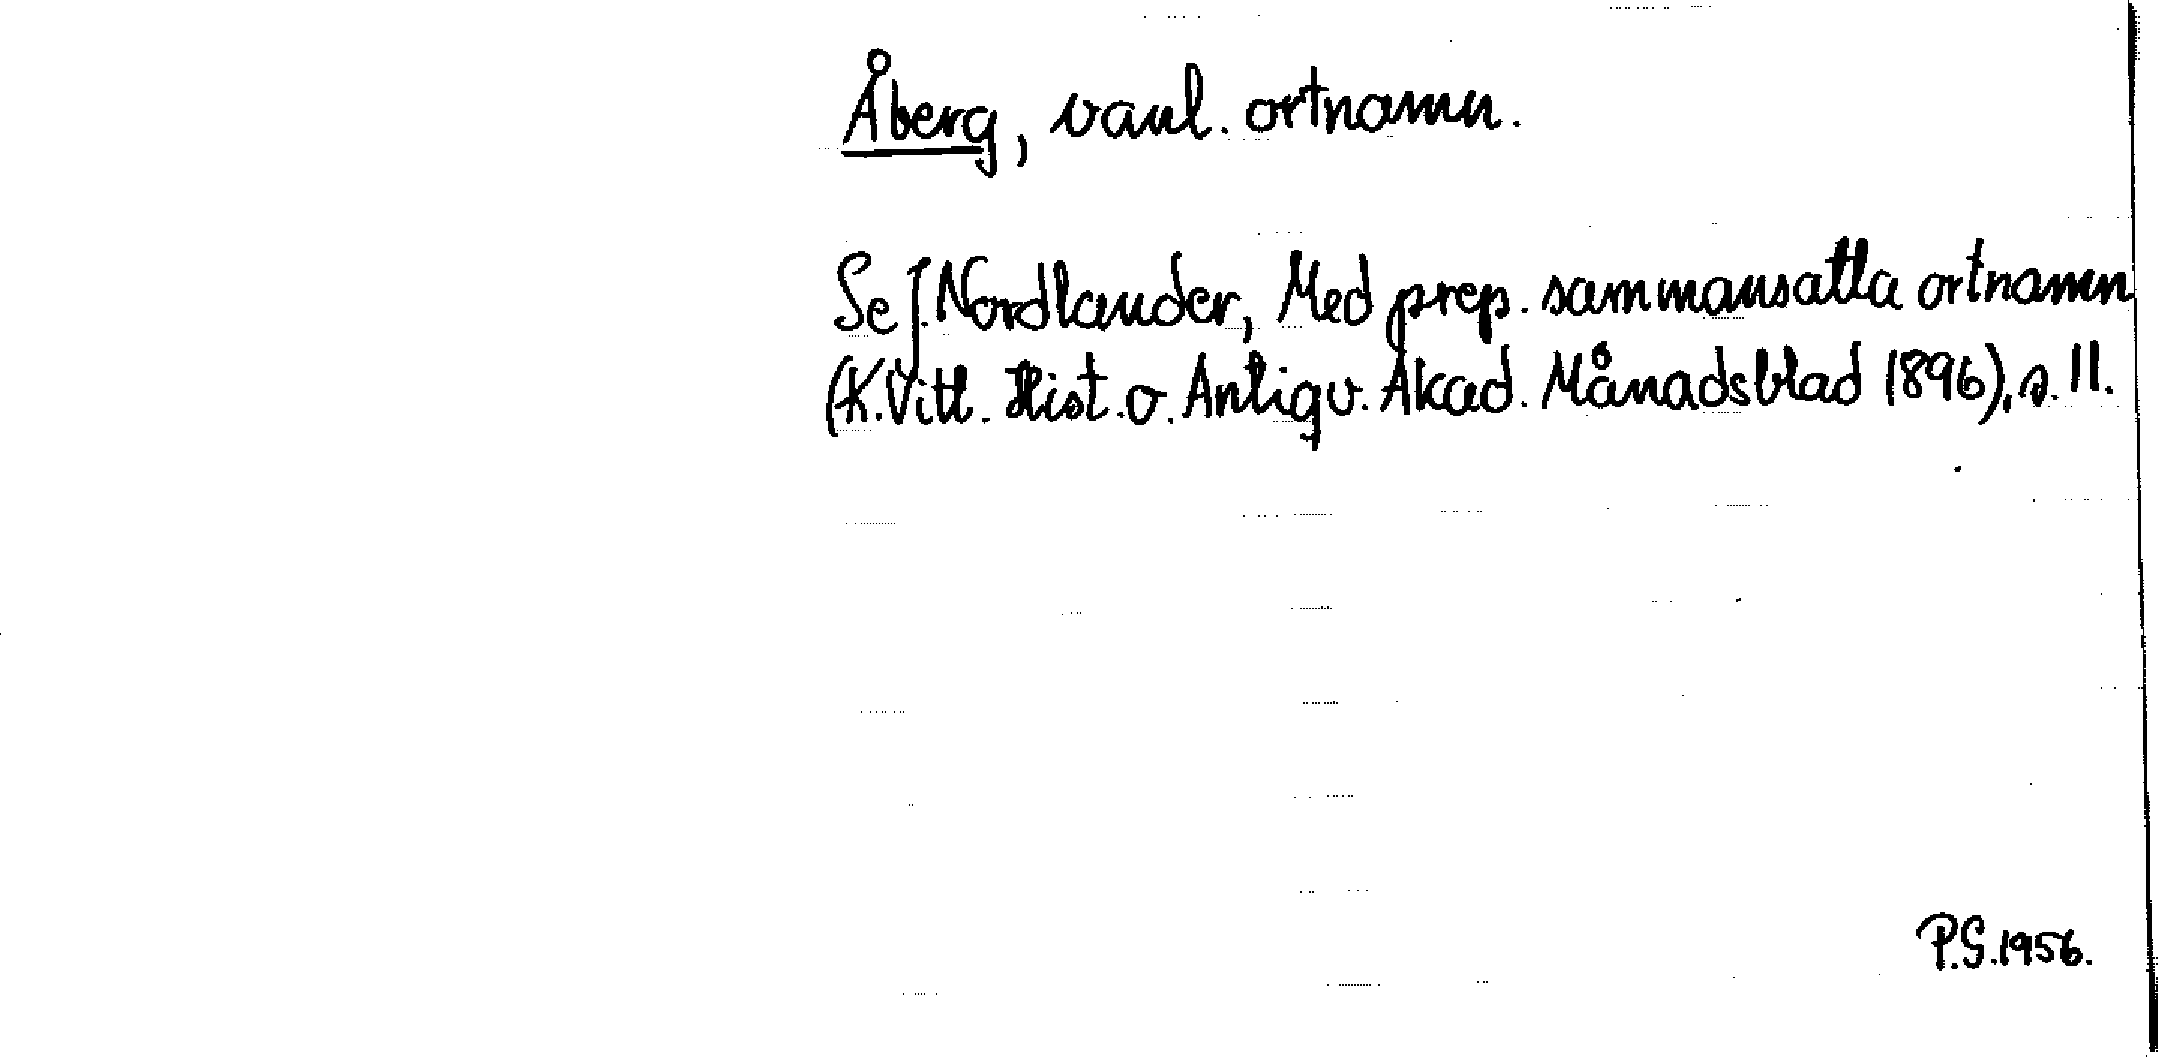 Åberg, vanl. ortnamn.
Se J. Nordlander, Med prep. sammansatta ortnamn
(K. Vitt. Hist. o. Antiqv. Akad. Månadsblad 1896), s. 11.
P.S. 1956.